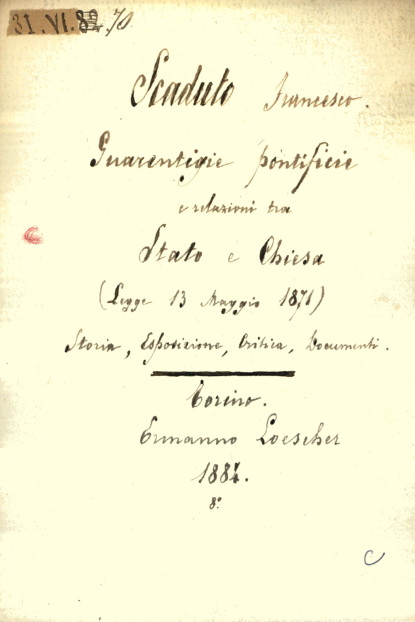 31. VI. 70
Scaduto Francesco.
Guarentigie pontificie
e relazioni tra
Stato e Chiesa
(Legge 13 Maggio 1871)
Storia, Esposizione, Critica, Documenti.
Torino.
Ermanno Loescher
1884.
8°
C